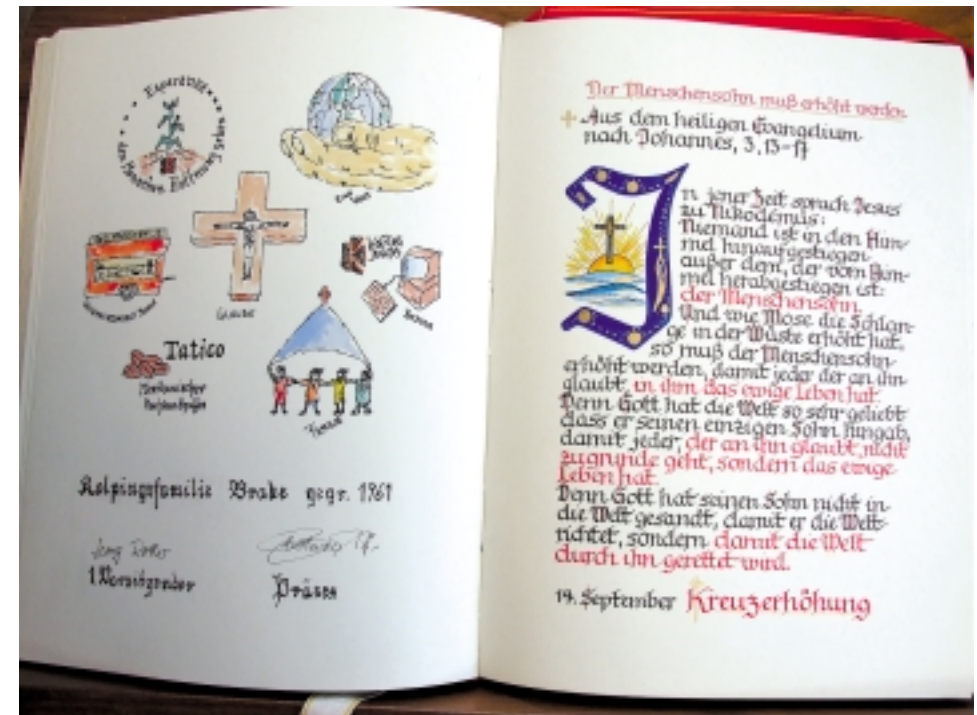 den Menschen Hoffnung geben
Glaube
Tatico
Mexikanischer
Kolpingsfamilie Brake gegr. 1961
1 Vorsitzender
Präses
Der Menschensohn muß erhöht werden
Aus dem heiligen Evangelium
nach Johannes, 3, 13-17
In jener Zeit sprach Jesus
zu Nikodemus:
Niemand ist in den Him-
mel hinaufgestiegen
außer dem, der vom Him-
mel herabgestiegen ist:
der Menschensohn.
Und wie Mose die Schlan-
ge in der Wüste erhöht hat,
so muß der Menschensohn
erhöht werden, damit jeder der an ihn
glaubt, in ihm das ewige Leben hat.
Denn Gott hat die Welt so sehr geliebt
dass er seinen einzigen Sohn hingab,
damit jeder, der an ihn glaubt, nicht
zugrunde geht, sondern das ewige
Leben hat.
Denn Gott hat seinen Sohn nicht in
die Welt gesandt, damit er die Welt
richtet, sondern damit die Welt
durch ihn gerettet wird.
14. September Kreuzerhöhung